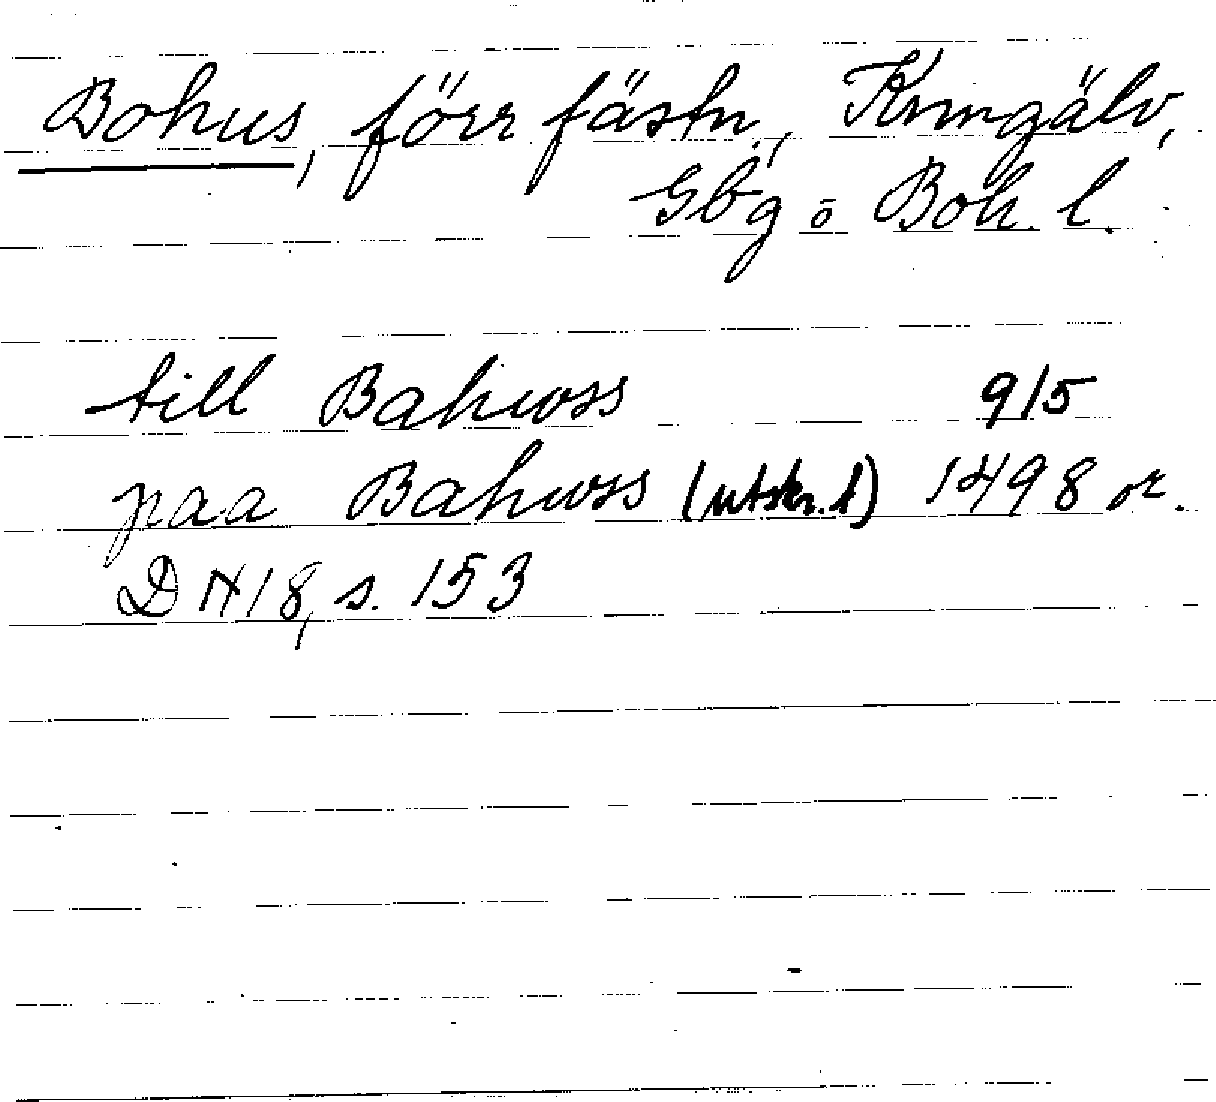 Bohus, förr fästn, Kungälv,
Gbg o Boh. l.
till Bahwss 9/5
paa Bahwss (utskr. 1) 1498 or.
DN 18, s. 153